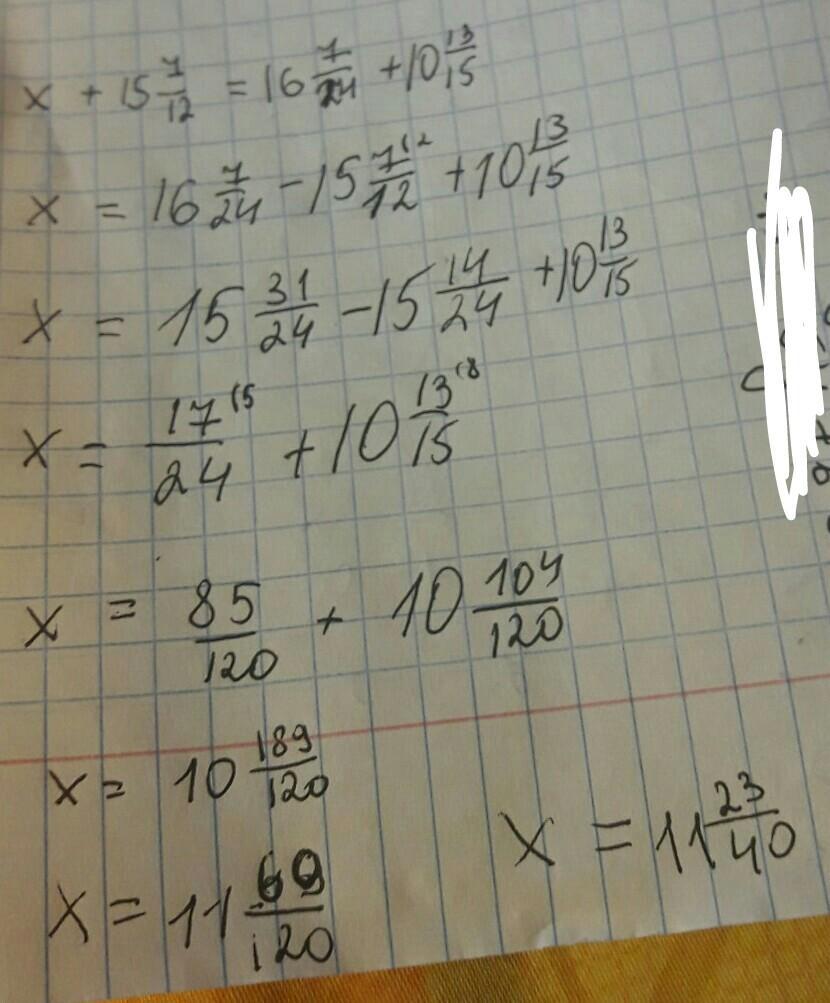 x + 15 7/12 = 16 7/24 + 10 13/15
x = 16 7/24 - 15 7(2/12 + 10 13/15
x = 15 31/24 - 15 14/24 + 10 13/15
x = 17(5/24 + 10 13(8/15
x = 85/120 + 10 104/120
x = 10 189/120
x = 11 69/120
x = 11 23/40